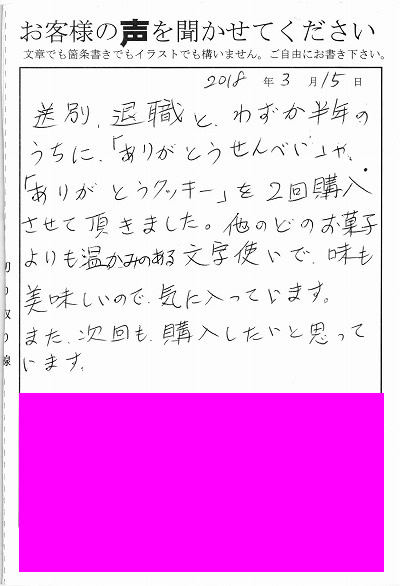 お客様の声を聞かせてください
文章でも箇条書きでもイラストでも構いません。ご自由にお書き下さい。
2018 年 3 月 15 日
送別、退職と、わずか半年の
うちに、「ありがとうせんべい」や、
「ありがとうクッキー」を2回購入
させて頂きました。他のどのお菓子
よりも温かみのある文字使いで、味も
美味しいので、気に入っています。
また、次回も、購入したいと思って
います。
切り取り線